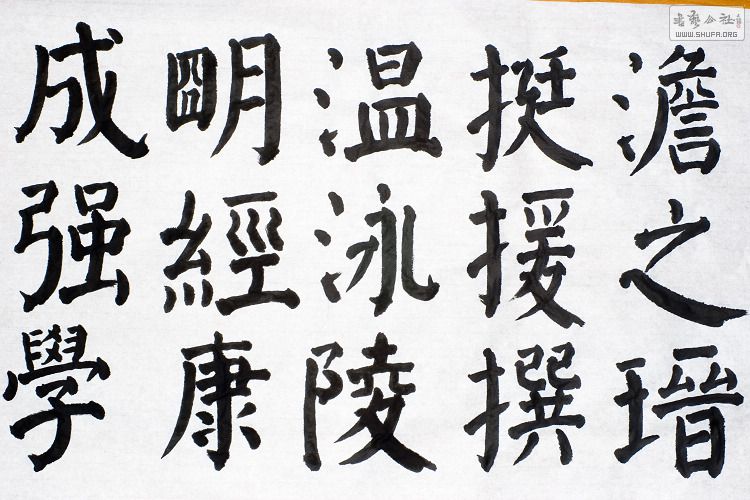 澹之瑨
挺援撰
温泳陵
朙經康
成强學
書藝公社
WWW.SHUFA.ORG